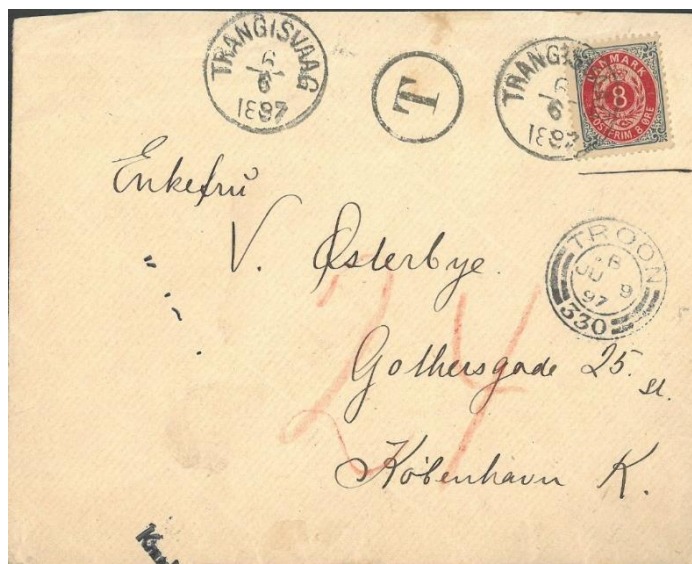 TRANGISVAAG
6/6
1897
T
TRANGISVAAG
6/6
1897
DANMARK
8
POSTFRIM. 8 ØRE
Enkefru
V. Østerbye.
" - .
24
TROON
B
JU 9
97
330
Gothersgade 25. st.
København K.